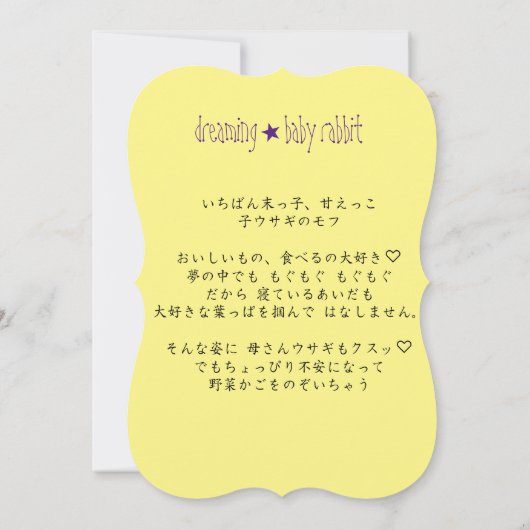 dreaming ★ baby rabbit
いちばん末っ子、甘えっこ
子ウサギのモフ
おいしいもの、食べるの大好き♡
夢の中でも もぐもぐ もぐもぐ
だから 寝ているあいだも
大好きな葉っぱを掴んで はなしません。
そんな姿に 母さんウサギもクスッ♡
でもちょっぴり不安になって
野菜かごをのぞいちゃう